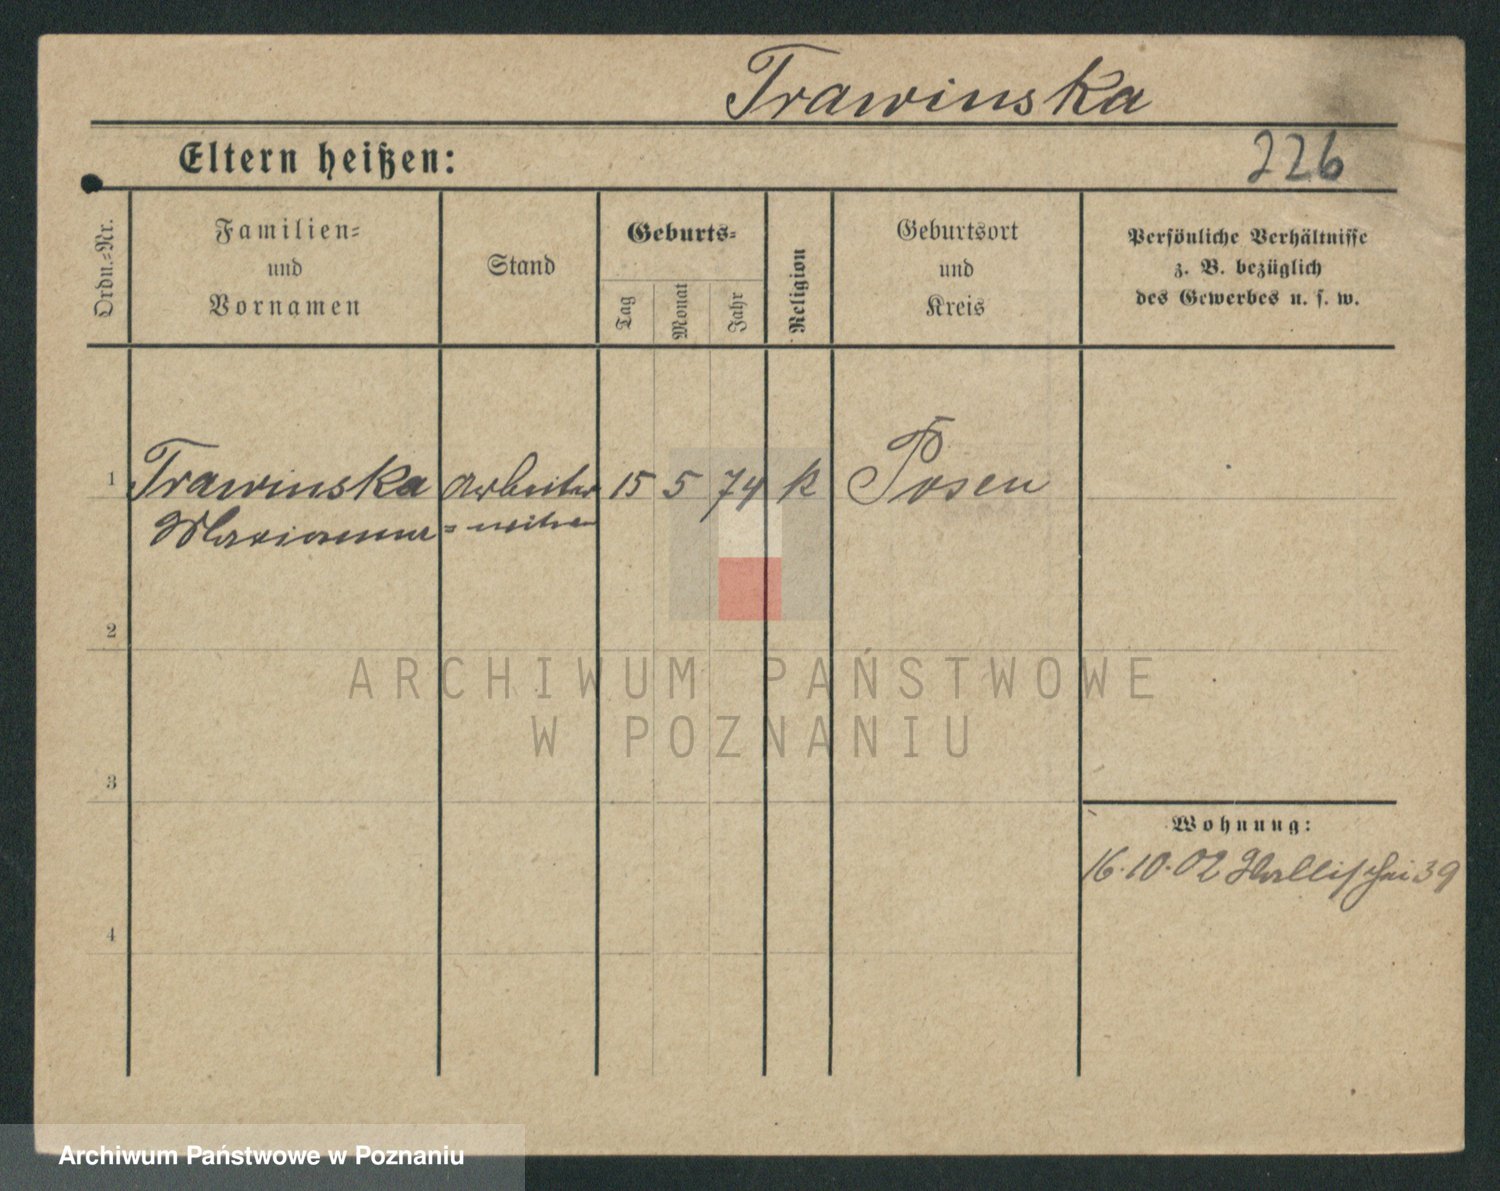 Trawinska
Eltern heißen:
226
Ordn.=Nr.
Familien=
und
Vornamen
Stand
Geburts=
Tag
Monat
Jahr
Religion
Geburtsort
und
Kreis
Persönliche Verhältnisse
z. B. bezüglich
des Gewerbes u. s. w.
1
Trawinska
Arbeiter
15
5
74
k
Posen
Marianna
2
ARCHIWUM PAŃSTWOWE
W POZNANIU
3
Wohnung:
16.10.02 39
4
Archiwum Państwowe w Poznaniu